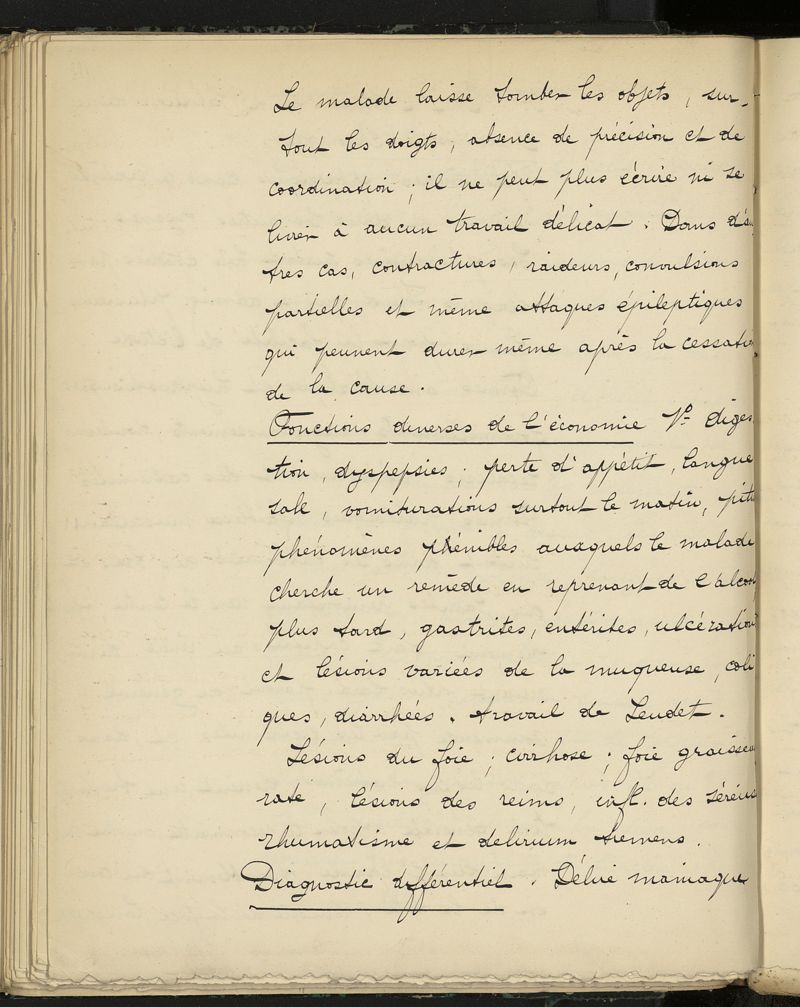 Le malade laisse tomber les objets, sur-
tout les doigts, absence de précision et de
coordination ; il ne peut plus écrire ni se
livrer à aucun travail délicat. Dans d'au
tres cas, contractures, raideurs, convulsions
partielles et même attaques épileptiques
qui peuvent durer même après la cessatio
de la cause.
Fonctions diverses de l'économie diges
tion, dyspepsies, perte d'appétit, langue
sale, vomiturations surtout le matin,
phénomènes phénibles auxquels le malade
cherche un remède en reprenant de l'alcool
plus tard, gastrites, entérites, ulcération
et lésions variées de la muqueuse, coli
ques, diarrhées. travail de Leudet.
Lésions du foie ; cirrhose ; foie graisseu
rate, lésions des reins, infl. des séreus
rhumatisme et delirium tremens.
Diagnostic différentiel. Délire maniaque